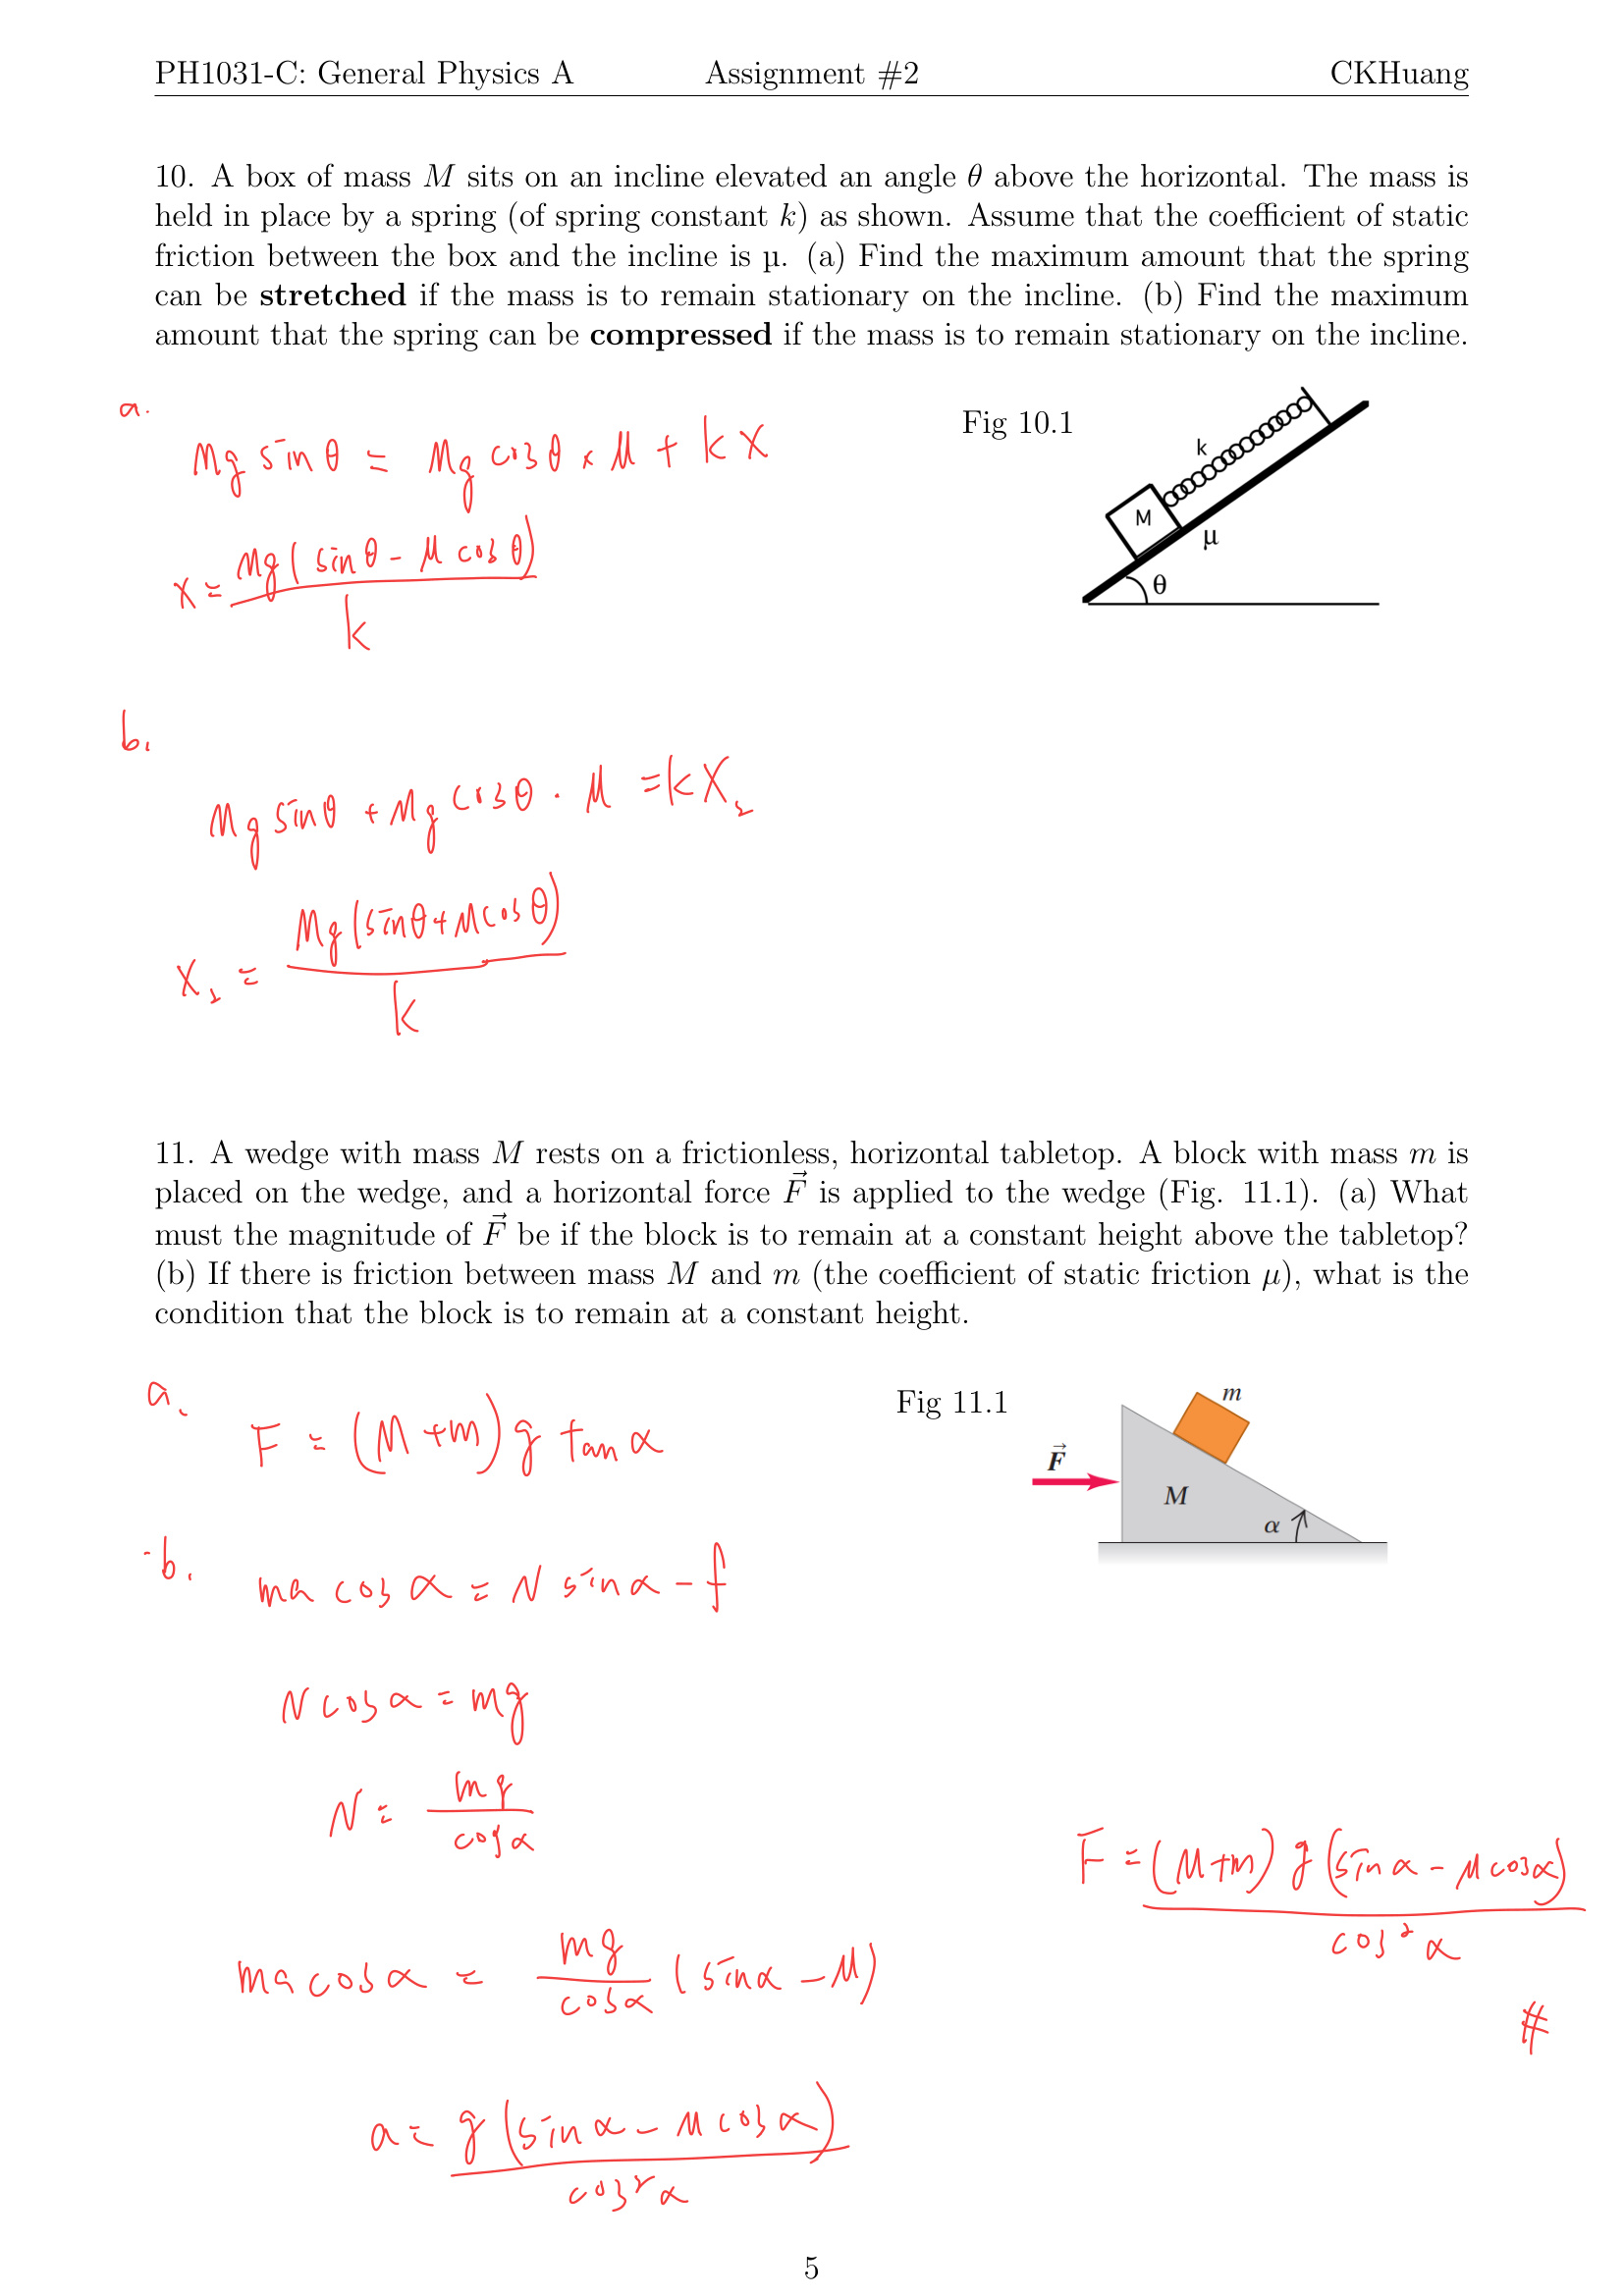 PH1031-C: General Physics A Assignment #2 CKHuang
10. A box of mass M sits on an incline elevated an angle θ above the horizontal. The mass is
held in place by a spring (of spring constant k) as shown. Assume that the coefficient of static
friction between the box and the incline is µ. (a) Find the maximum amount that the spring
can be stretched if the mass is to remain stationary on the incline. (b) Find the maximum
amount that the spring can be compressed if the mass is to remain stationary on the incline.
a.
Mg sinθ = Mg cosθ × μ + kx
x = Mg(sinθ - μ cosθ) / k
Fig 10.1
k
M
μ
θ
b.
Mg sinθ + Mg cosθ · μ = kx₂
x₂ = Mg(sinθ + μ cosθ) / k
11. A wedge with mass M rests on a frictionless, horizontal tabletop. A block with mass m is
placed on the wedge, and a horizontal force F⃗ is applied to the wedge (Fig. 11.1). (a) What
must the magnitude of F⃗ be if the block is to remain at a constant height above the tabletop?
(b) If there is friction between mass M and m (the coefficient of static friction μ), what is the
condition that the block is to remain at a constant height.
a.
F = (M+m) g tanα
Fig 11.1
m
F⃗
M
α
b.
ma cosα = N sinα - f
N cosα = mg
N = mg / cosα
ma cosα = mg / cosα (sinα - μ)
a = g (sinα - μ cosα) / cos²α
F = (M+m) g (sinα - μ cosα) / cos²α
#
5